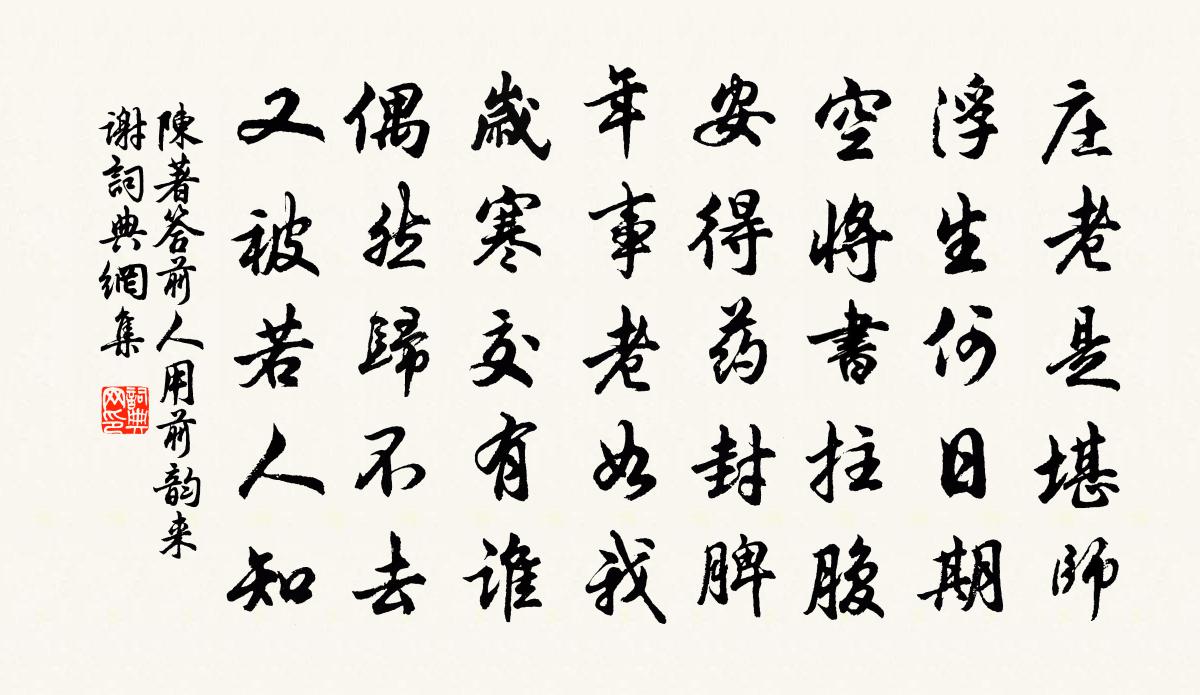 庄老是堪师
浮生何日期
空将書拄腹
安得药封脾
年事老如我
歲寒交有谁
偶然歸不去
又被若人知
陳著答前人用前韵来
谢詞典網集
詞典
网印